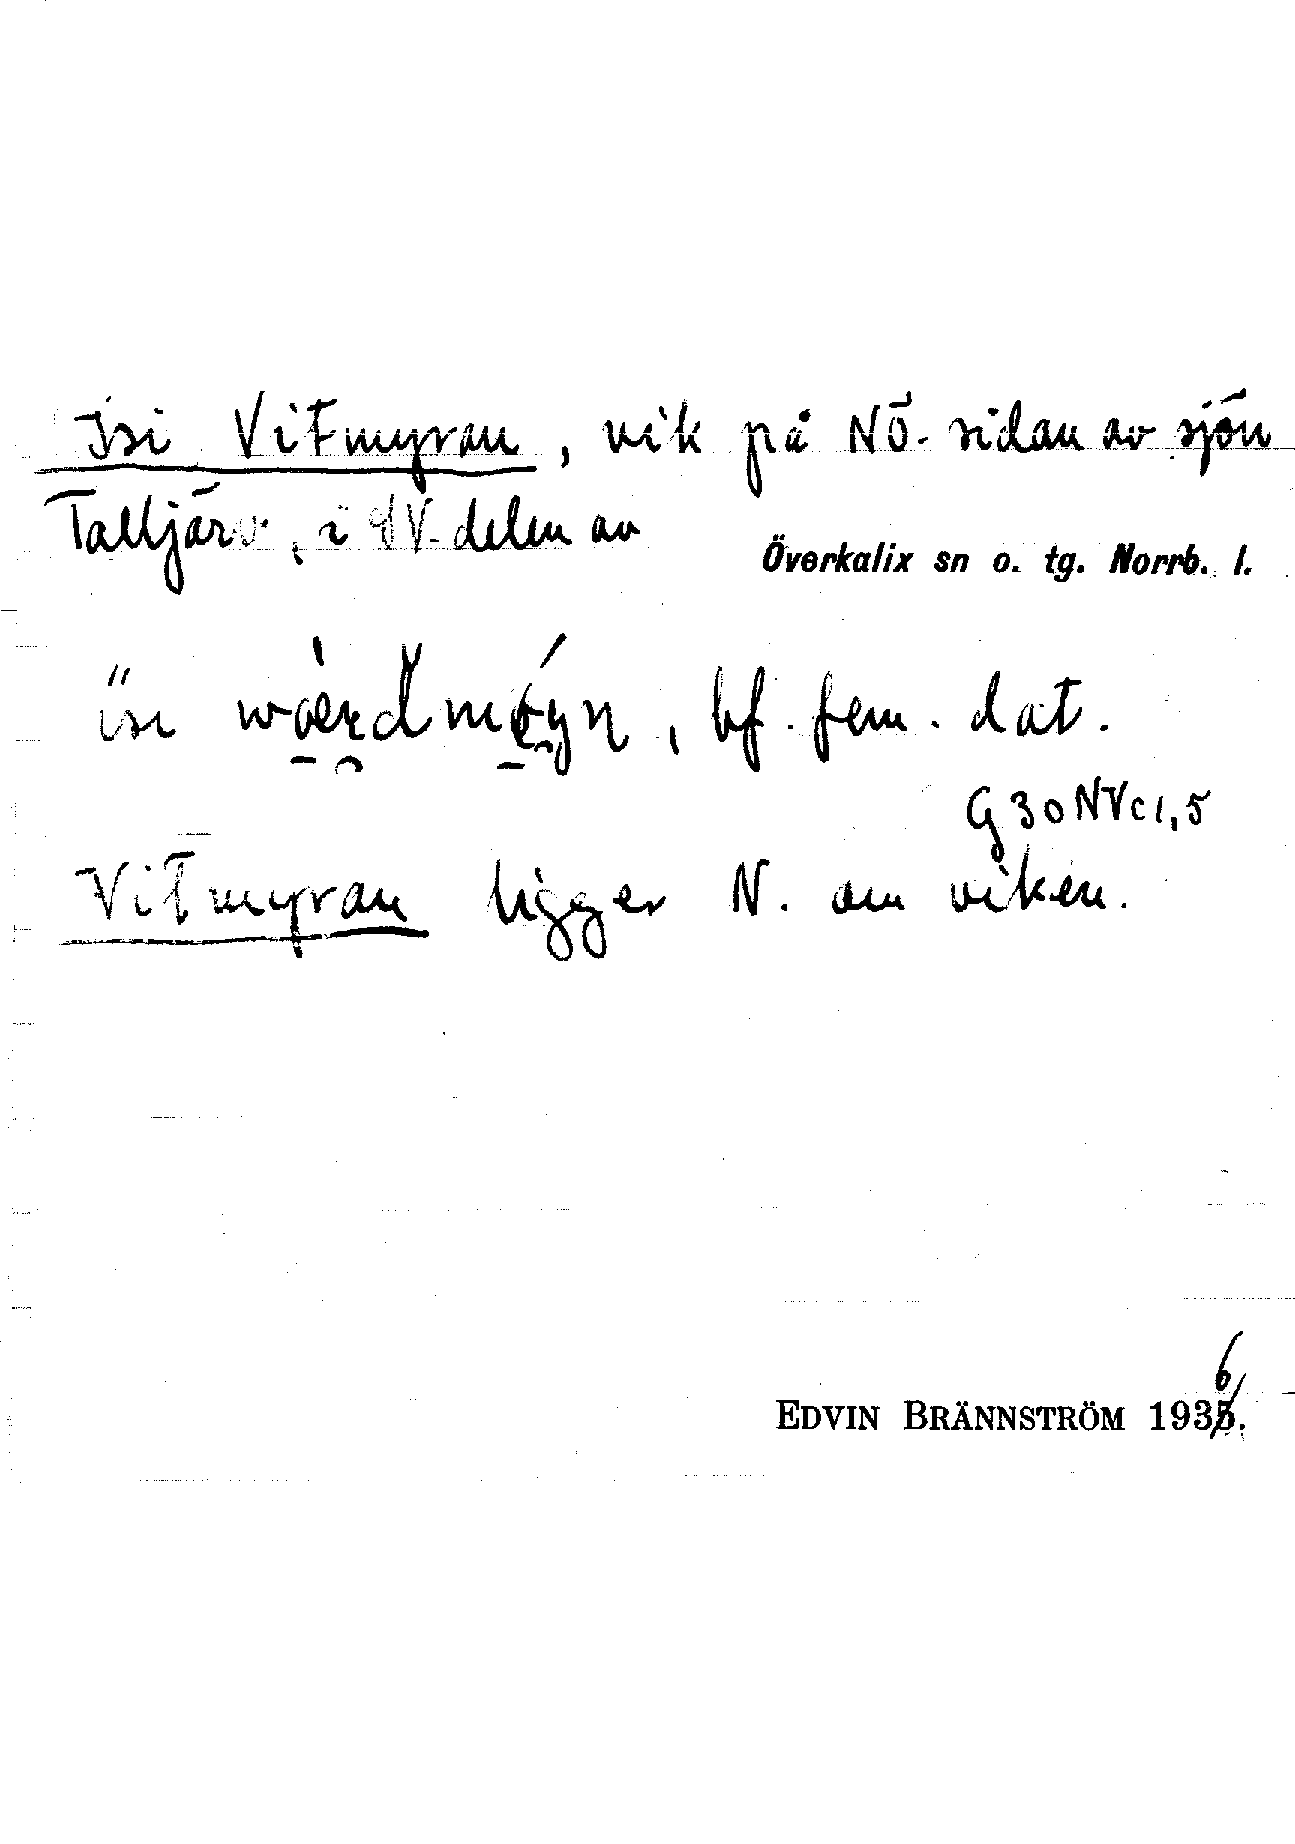 Isi Vitmyran, vik på NÖ-sidan av sjön
Talljärv, i SV-delen av
Överkalix sn o. tg. Norrb. l.
bf. fem. dat.
G 30 NVc 1,5
Vitmyran ligger N. om viken.
6
EDVIN BRÄNNSTRÖM 1935.